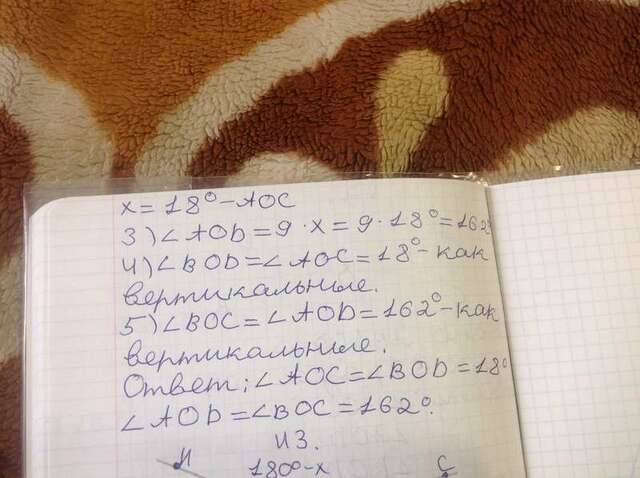 x = 18° - AOC
3) ∠AOD = 9 · x = 9 · 18° = 162°
4) ∠BOD = ∠AOC = 18° - как
вертикальные.
5) ∠BOC = ∠AOD = 162° - как
вертикальные.
Ответ: ∠AOC = ∠BOD = 18°
∠AOD = ∠BOC = 162°.
из.
180° - x
C